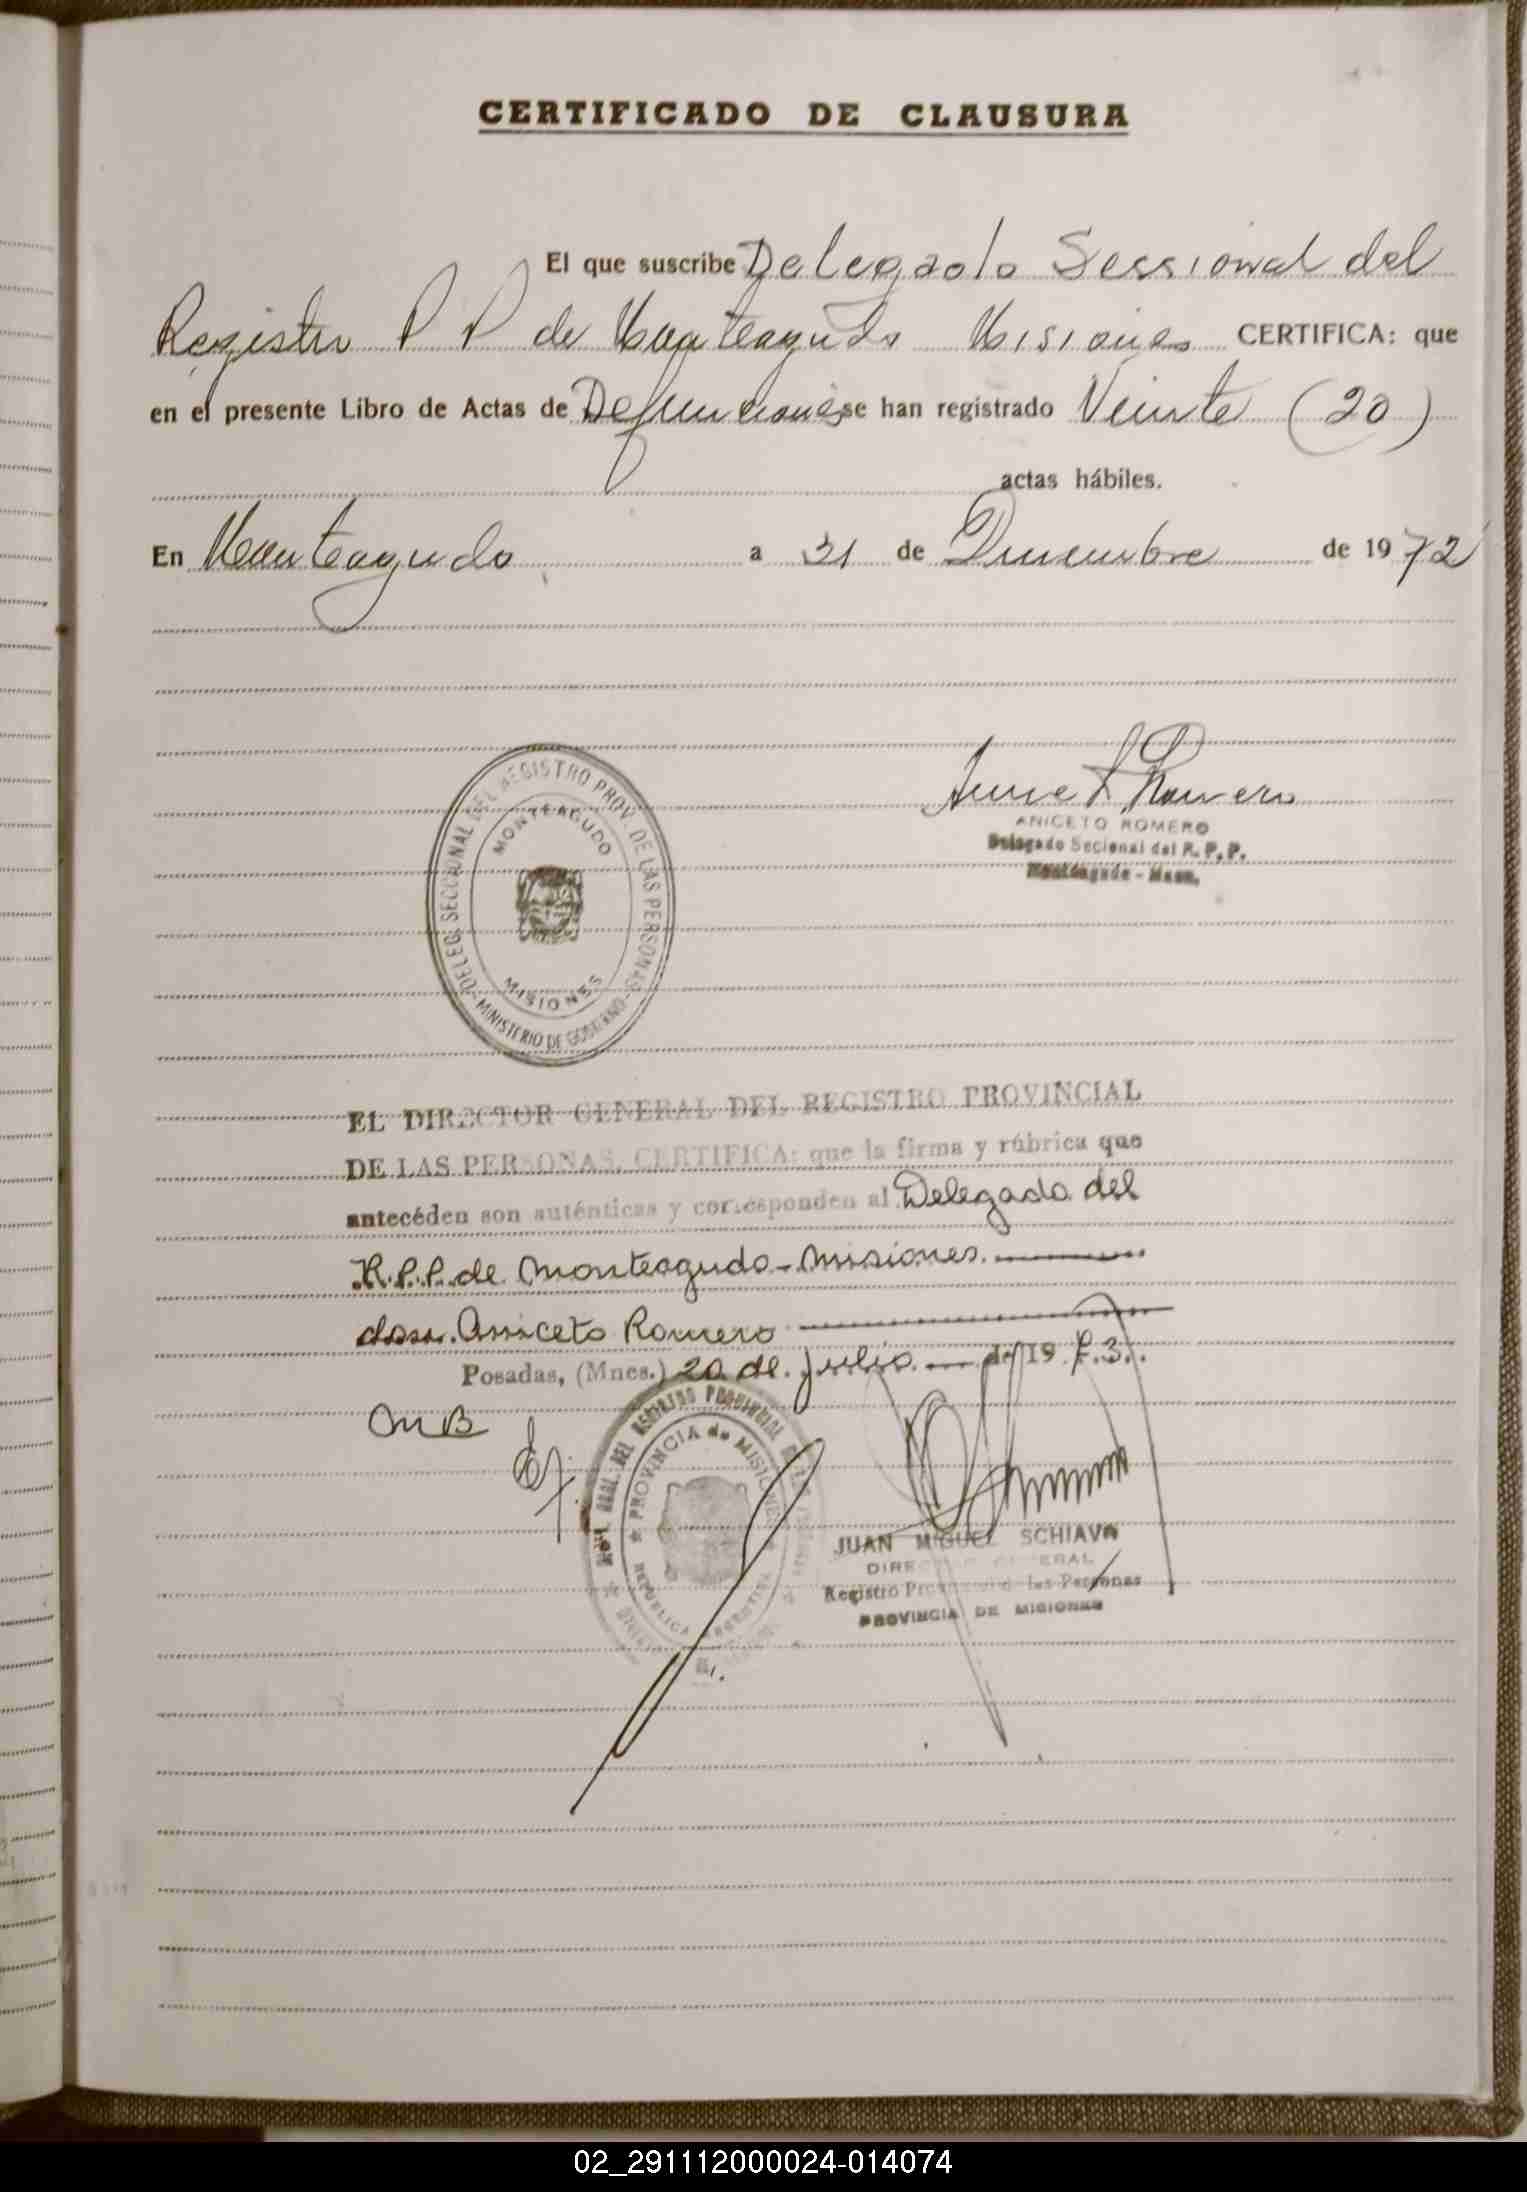 CERTIFICADO DE CLAUSURA
El que suscribe Delegado Sessional del
Registro P P de Monteagudo Misiones CERTIFICA: que
en el presente Libro de Actas de Defunciones se han registrado Veinte (20)
actas hábiles.
En Monteagudo a 31 de Diciembre de 1972
DELEG. SECCIONAL DEL REGISTRO PROV. DE LAS PERSONAS
MONTEAGUDO
MISIONES
MINISTERIO DE GOBIERNO
Romero
ANICETO ROMERO
Delegado Seccional del R. P. P.
Monteagudo - Mnes.
EL DIRECTOR GENERAL DEL REGISTRO PROVINCIAL
DE LAS PERSONAS, CERTIFICA: que la firma y rúbrica que
antecéden son auténticas y corresponden al Delegado del
R.P.P. de Monteagudo - Misiones.
don. Aniceto Romero
Posadas, (Mnes.) 20 de. Julio. de 19 7.3.
OMB
GRAL. DEL REGISTRO PROVINCIAL DE LAS
PROVINCIA de MISIONES
REPUBLICA ARGENTINA
JUAN MIGUEL SCHIAVO
DIRECTOR GENERAL
Registro Provincial de las Personas
PROVINCIA DE MISIONES
02_291112000024-014074